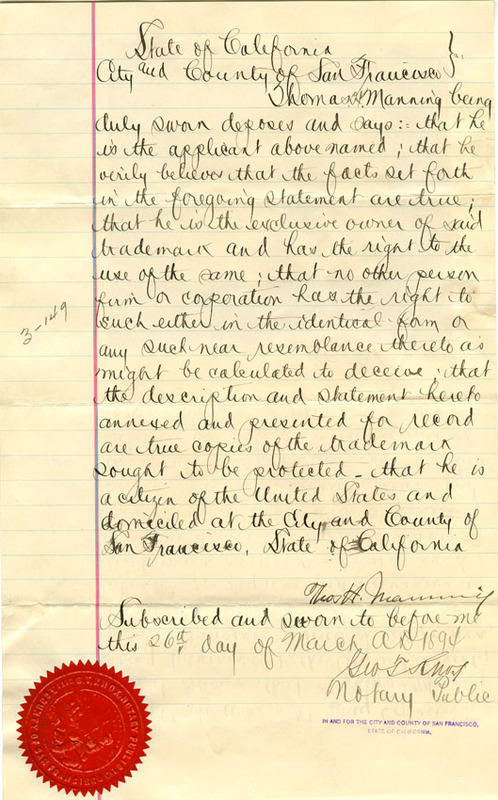 State of California }
City and County of San Francisco
Thomas H. Manning being
duly sworn deposes and says:- that he
is the applicant above named; that he
verily believes that the facts set forth
in the foregoing statement are true;
that he is the exclusive owner of said
trademark and has the right to the
use of the same; that no other person
firm or corporation has the right to
such either in the identical form or
any such near resemblance thereto as
might be calculated to deceive; that
the description and statement hereto
annexed and presented for record
are true copies of the trademark
sought to be protected - that he is
a citizen of the United States and
domiciled at the City and County of
San Francisco, State of California
3-149
Thos H. Manning
Subscribed and sworn to before me
this 26th day of March AD 1894
Geo T Knox
Notary Public
IN AND FOR THE CITY AND COUNTY OF SAN FRANCISCO,
STATE OF CALIFORNIA.